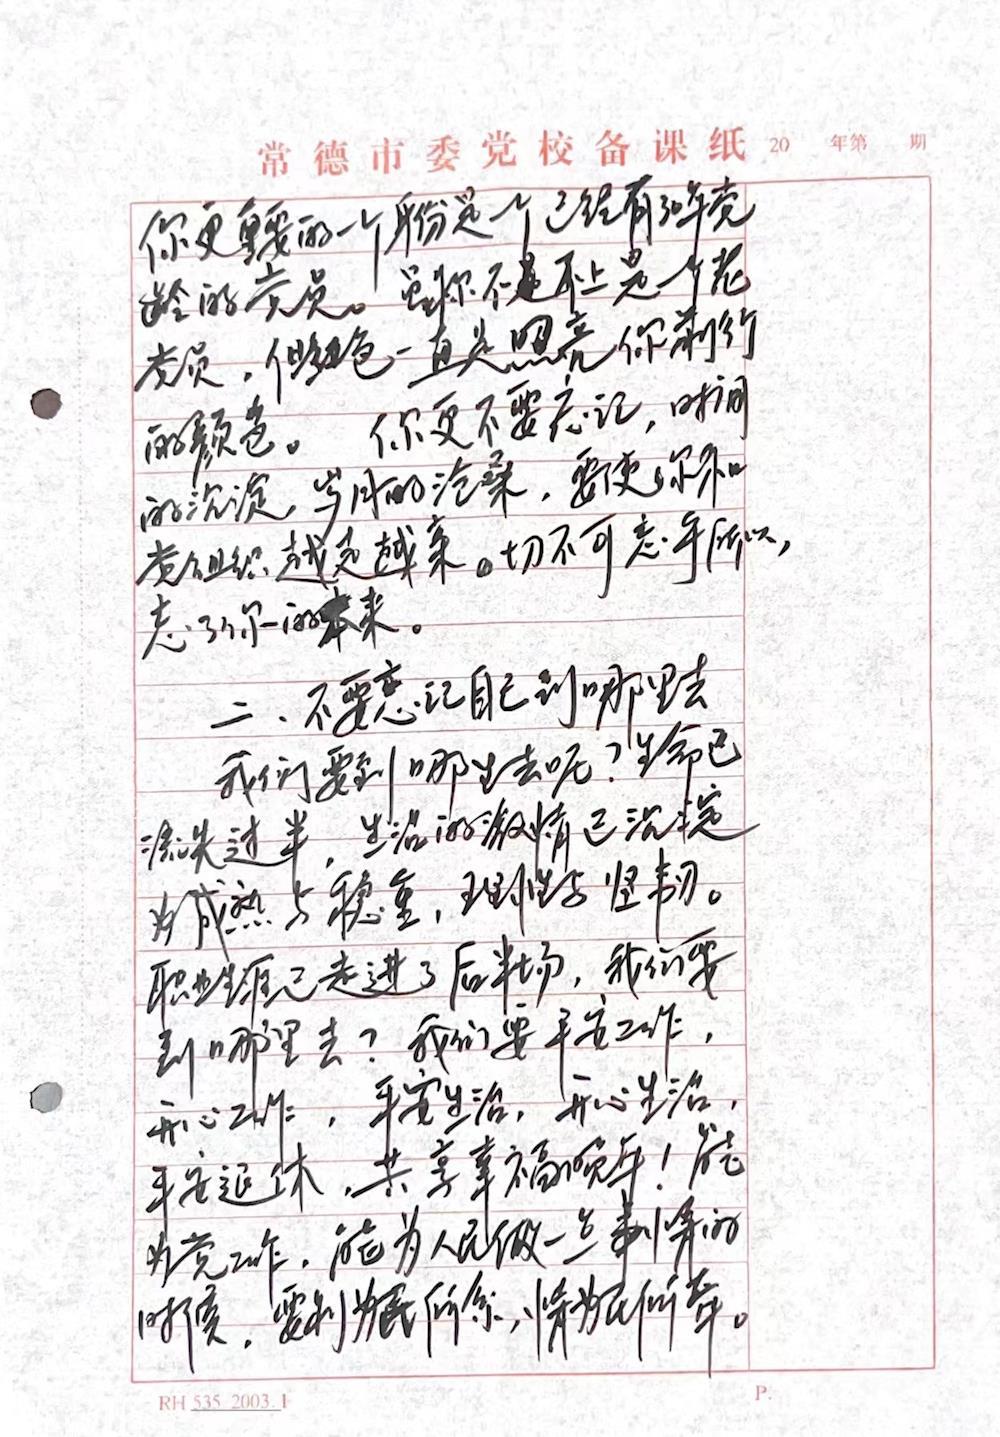 常德市委党校备课纸 20 年第 期
你更重要的一个身份是一个已经有30年党
龄的党员。虽你不是不上是一个老
党员，但红色一直是照亮你前行
的颜色。 你更不要忘记，时间
的沉淀，岁月的沧桑，要使你和
党组织越走越亲。切不可忘乎所以，
忘了你的本来。
二、不要忘记自己到哪里去
我们要到哪里去呢？生命已
流失过半，生活的激情已沉淀
为成熟与稳重，理性与坚韧。
职业生涯已走进了后半场，我们要
到哪里去？我们要平安工作，
开心工作，平安生活，开心生活，
平安退休，共享幸福晚年！能
为党工作，能为人民做一点事情的
时候，要利为民所系，情为民所牵。
RH 535 2003.1
P.